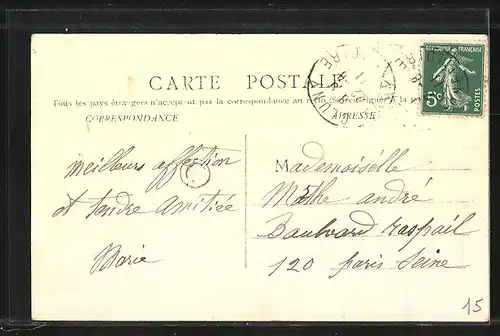 CARTE POSTALE
Tous les pays étrangers n'acceptent pas la correspondance au recto (Se renseigner à la
CORRESPONDANCE
ADRESSE
REPUBLIQUE FRANÇAISE
5c
POSTES
meilleurs affection
et tendre amitiée
Marie
Mademoiselle
Marthe andré
Baulvard raspail
120 paris Seine
15